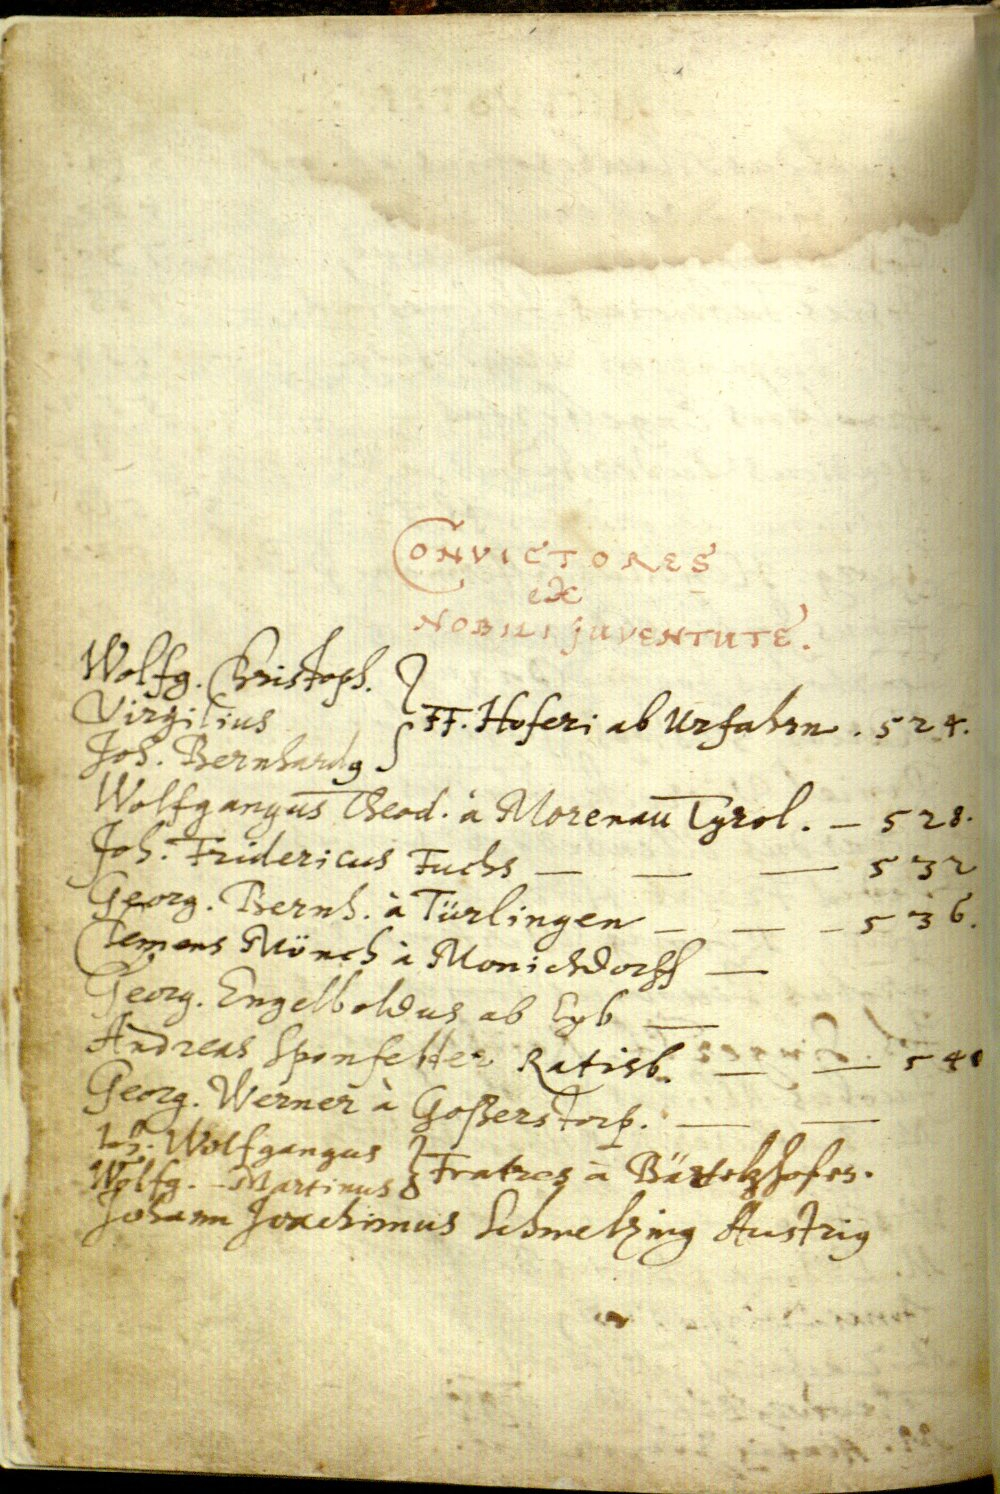 CONVICTORES
ex
NOBILI JUVENTUTE.
Wolfg. Christoph.
Virgilius
FF. Hoferi ab Urfahrn. 524.
Joh. Bernhardg
Wolfgangus Theod. à Morenau Tyrol. — 528.
Joh. Fridericus Fuchs — — — 532
Georg. Bernh. à Türlingen — — – 536.
Clemens Münch à Monichdorff —
Georg. Engelboldus ab Eyb —
Andreas Sponfelder Ratisb. — — 541
Georg. Werner à Goßerstorp. — —
Wolfgangus
Fratres à
Wolfg. – Martinus
Johann Joachimus Schmelzing Austrig